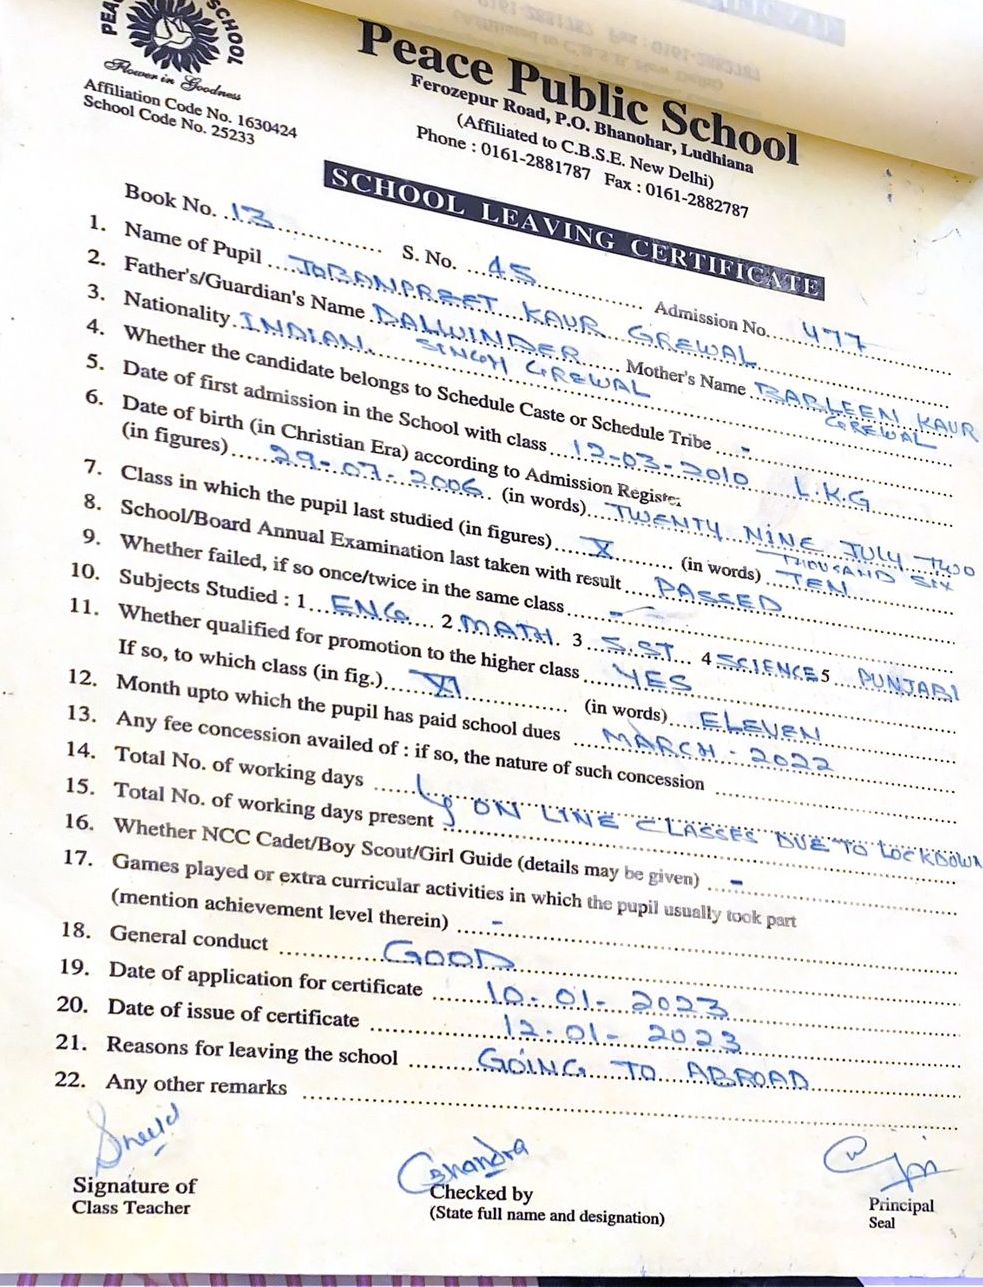 PEACE SCHOOL
Flower in Goodness
Affiliation Code No. 1630424
School Code No. 25233
Peace Public School
Ferozepur Road, P.O. Bhanohar, Ludhiana
(Affiliated to C.B.S.E. New Delhi)
Phone : 0161-2881787 Fax : 0161-2882787
SCHOOL LEAVING CERTIFICATE
Book No. 13 S. No. 45 Admission No. 477
1. Name of Pupil JOBANPREET KAUR GREWAL
2. Father's/Guardian's Name DALWINDER SINGH GREWAL Mother's Name BARLEEN KAUR GREWAL
3. Nationality INDIAN.
4. Whether the candidate belongs to Schedule Caste or Schedule Tribe -
5. Date of first admission in the School with class 12-03-2010 L.K.G
6. Date of birth (in Christian Era) according to Admission Register
(in figures) 29-07-2006 (in words) TWENTY NINE JULY TWO THOUSAND SIX
7. Class in which the pupil last studied (in figures) X (in words) TEN
8. School/Board Annual Examination last taken with result PASSED
9. Whether failed, if so once/twice in the same class -
10. Subjects Studied : 1 ENG 2 MATH. 3 S.ST 4 SCIENCE 5 PUNJABI
11. Whether qualified for promotion to the higher class YES
If so, to which class (in fig.) XI (in words) ELEVEN
12. Month upto which the pupil has paid school dues MARCH - 2022
13. Any fee concession availed of : if so, the nature of such concession
14. Total No. of working days
15. Total No. of working days present ON LINE CLASSES DUE TO LOCKDOWN
16. Whether NCC Cadet/Boy Scout/Girl Guide (details may be given) -
17. Games played or extra curricular activities in which the pupil usually took part
(mention achievement level therein) -
18. General conduct GOOD
19. Date of application for certificate 10-01-2023
20. Date of issue of certificate 12-01-2023
21. Reasons for leaving the school GOING TO ABROAD
22. Any other remarks
Chandra
Signature of Checked by Principal
Class Teacher (State full name and designation) Seal